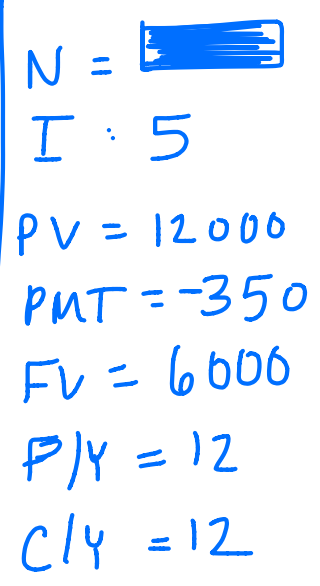 N =
I : 5
PV = 12000
PMT = -350
FV = 6000
P/Y = 12
C/Y = 12